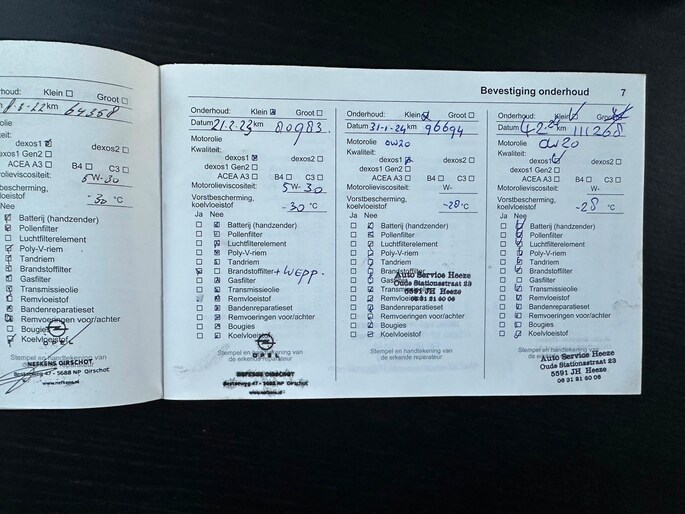 houd: Klein Groot
8-3-22 km 64358
dexos1 dexos2
dexos1 Gen2 B4 C3
ACEA A3
5W-30
-30 °C
Nee
Batterij (handzender)
Pollenfilter
Luchtfilterelement
Poly-V-riem
Tandriem
Brandstoffilter
Gasfilter
Transmissieolie
Remvloeistof
Bandenreparatieset
Remvoeringen voor/achter
Bougies
Koelvloeistof
OPEL
NEFKENS OIRSCHOT
Bestseweg 47 - 5688 NP Oirschot
www.nefkens.nl
Bevestiging onderhoud 7
Onderhoud: Klein Groot
Datum 21-2-23 km 80983
Motorolie
Kwaliteit:
dexos1 dexos2
dexos1 Gen2
ACEA A3 B4 C3
Motorolieviscositeit: 5W-30
Vorstbescherming,
koelvloeistof -30 °C
Ja Nee
Batterij (handzender)
Pollenfilter
Luchtfilterelement
Poly-V-riem
Tandriem
Brandstoffilter
Gasfilter
Transmissieolie
Remvloeistof
Bandenreparatieset
Remvoeringen voor/achter
Bougies
Koelvloeistof
Stempel en handtekening van
de erkende reparateur
OPEL
NEFKENS OIRSCHOT
Bestseweg 47 - 5688 NP Oirschot
www.nefkens.nl
Onderhoud: Klein Groot
Datum 31-1-24 km 96694
Motorolie 0W20
Kwaliteit:
dexos1 dexos2
dexos1 Gen2
ACEA A3 B4 C3
Motorolieviscositeit: W-
Vorstbescherming,
koelvloeistof -28 °C
Ja Nee
Batterij (handzender)
Pollenfilter
Luchtfilterelement
Poly-V-riem
Tandriem
Brandstoffilter
Gasfilter
Transmissieolie
Remvloeistof
Bandenreparatieset
Remvoeringen voor/achter
Bougies
Koelvloeistof
Auto Service Heeze
Oude Stationsstraat 23
5591 JH Heeze
06 31 21 60 06
Stempel en handtekening van
de erkende reparateur
Onderhoud: Klein Groot
Datum km 111268
Motorolie 0W20
Kwaliteit:
dexos1 dexos2
dexos1 Gen2
ACEA A3 B4 C3
Motorolieviscositeit: W-
Vorstbescherming,
koelvloeistof -28 °C
Ja Nee
Batterij (handzender)
Pollenfilter
Luchtfilterelement
Poly-V-riem
Tandriem
Brandstoffilter
Gasfilter
Transmissieolie
Remvloeistof
Bandenreparatieset
Remvoeringen voor/achter
Bougies
Koelvloeistof
Auto Service Heeze
Oude Stationsstraat 23
5591 JH Heeze
06 31 21 60 06